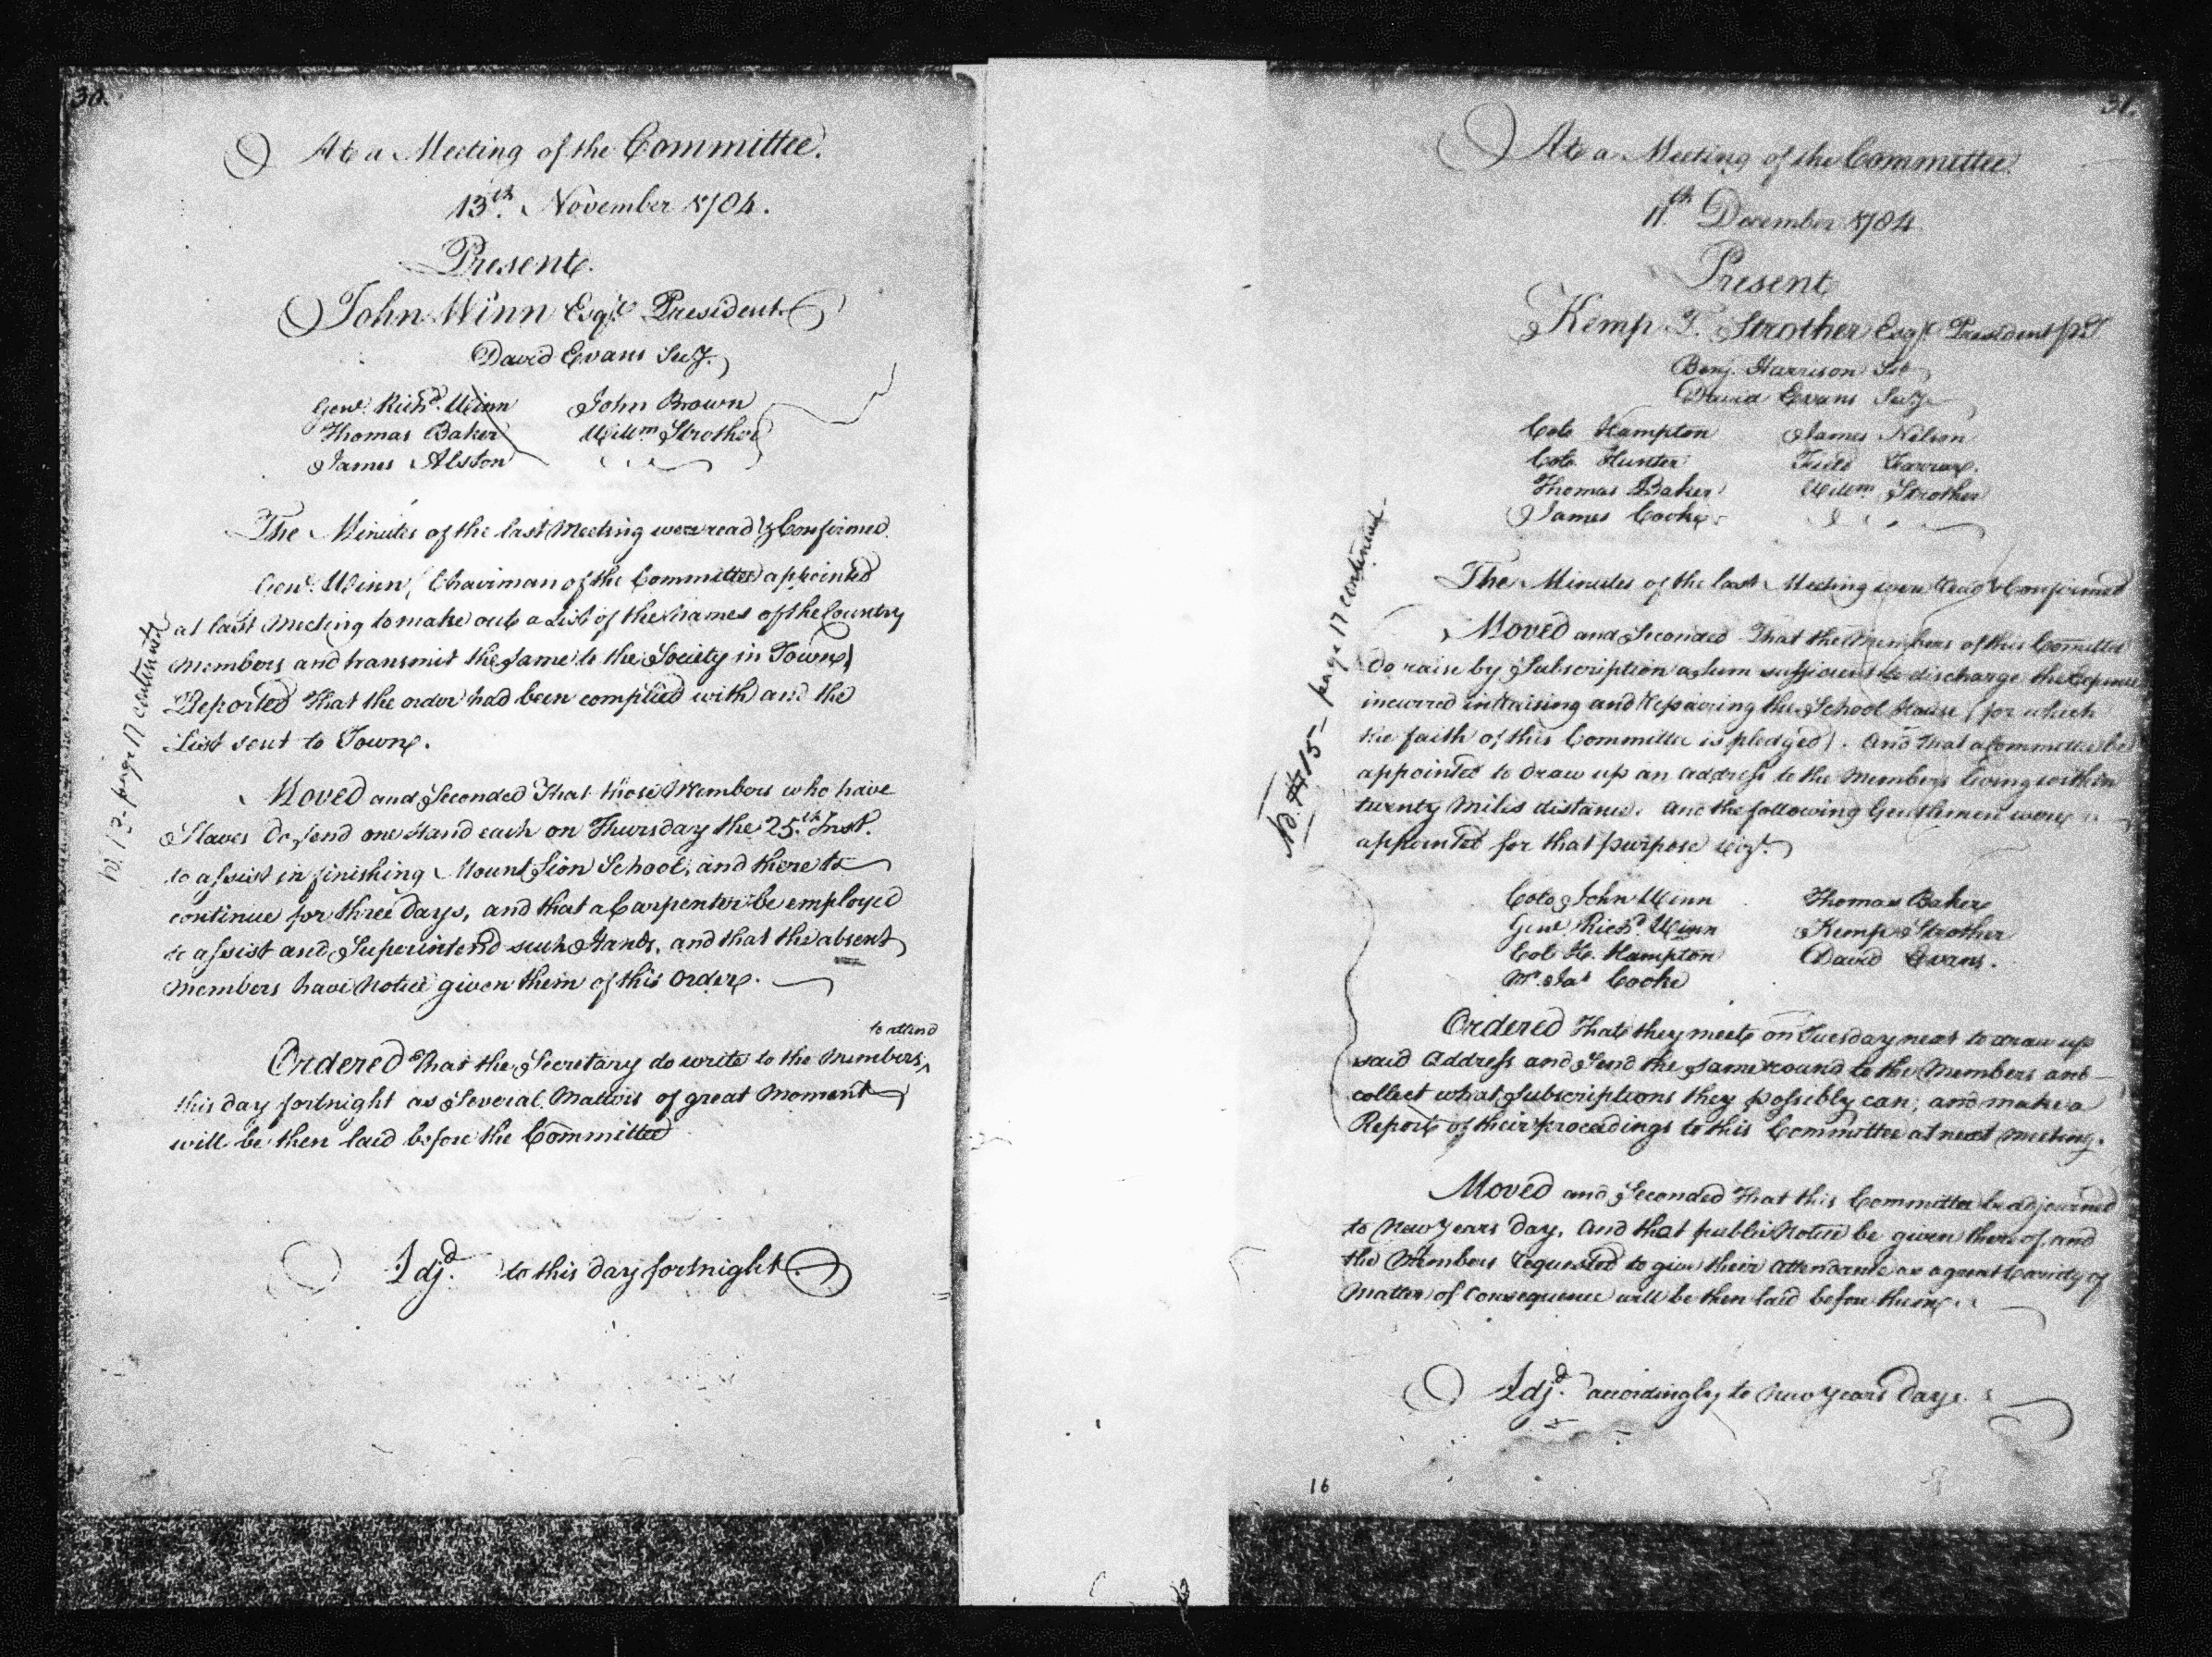 30.
At a Meeting of the Committee.
13th. November 1784.
Present.
John Winn Esqr. President
David Evans Secy.
Genl. Richd. Winn John Brown
Thomas Baker Willm Strother
James Alston
The Minutes of the last Meeting were read & Confirmed.
Genl. Winn, Chairman of the Committee appointed
at last Meeting to make out a List of the Names of the Country
Members and transmit the Same to the Society in Town,
Reported that the order had been complied with and the
List sent to Town.
Moved and Seconded That those Members who have
Slaves do send one Hand each on Thursday the 25th. Inst.
to assist in finishing Mount Sion School, and there to
continue for three Days, and that a Carpenter be employed
to assist and Superintend such Hands, and that the absent
Members have Notice given them of this Order.
to attend
Ordered That the Secretary do write to the Members,
this day fortnight as Several Matters of great Moment
will be then laid before the Committee
Adjd. to this day fortnight
No. 13 - page 17 continued
31.
At a Meeting of the Committee
11th December 1784
Present
Kemp T. Strother Esqr. President
Benj. Harrison
David Evans Secy
Colo Hampton James Nelson
Colo. Hunter Field Farrar.
Thomas Baker Willm Strother
James Cooke
The Minutes of the last Meeting were Read & Confirmed
Moved and Seconded That the Members of this Committee
do raise by Subscription a Sum sufficient to discharge the Expence
incurred in Raising and Repairing the School House (for which
the faith of this Committee is pledged). And that a Committee be
appointed to draw up an address to the Members living within
twenty Miles distance. And the following Gentlemen were
appointed for that purpose vizt.
Colo. John Winn Thomas Baker
Genl Richd. Winn Kemp Strother
Col. H. Hampton David Evans.
Mr. Jas Cooke
Ordered That they meet on Tuesday next to draw up
said Address and Send the Same round to the Members and
collect what Subscriptions they possibly can, and make a
Report of their proceedings to this Committee at next Meeting.
Moved and Seconded that this Committee be adjourned
to New Years Day, And that public Notice be given thereof, and
the Members requested to give their Attendance as a great Variety of
Matter of Consequence will be then laid before them
Adjd. accordingly to New Years Day.
No. 15 - page 17 continued
16